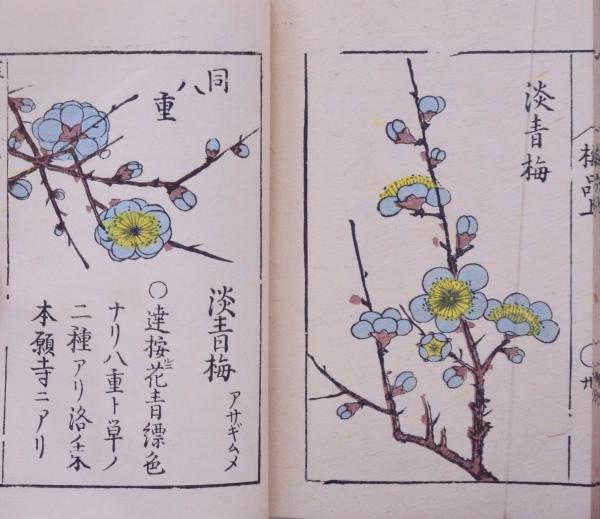 淡青梅
梅品上
〇卅
同八重
淡青梅 アサギムメ
〇達按花青縹色
ナリ八重ト単ノ
二種アリ洛東
本願寺ニアリ